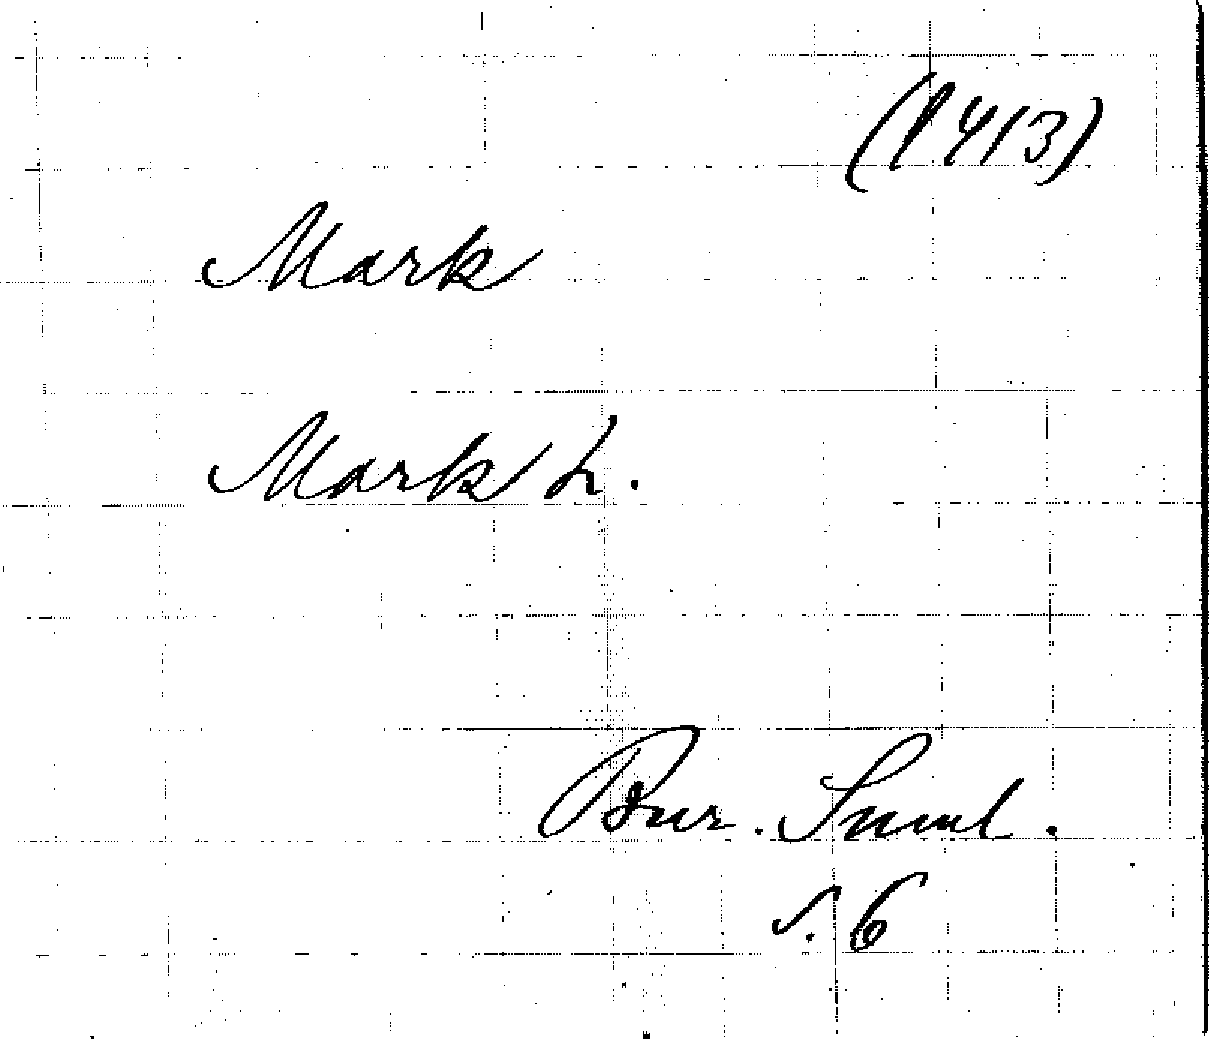 (1413)
Mark
Mark h.
Bur. Saml.
s. 6